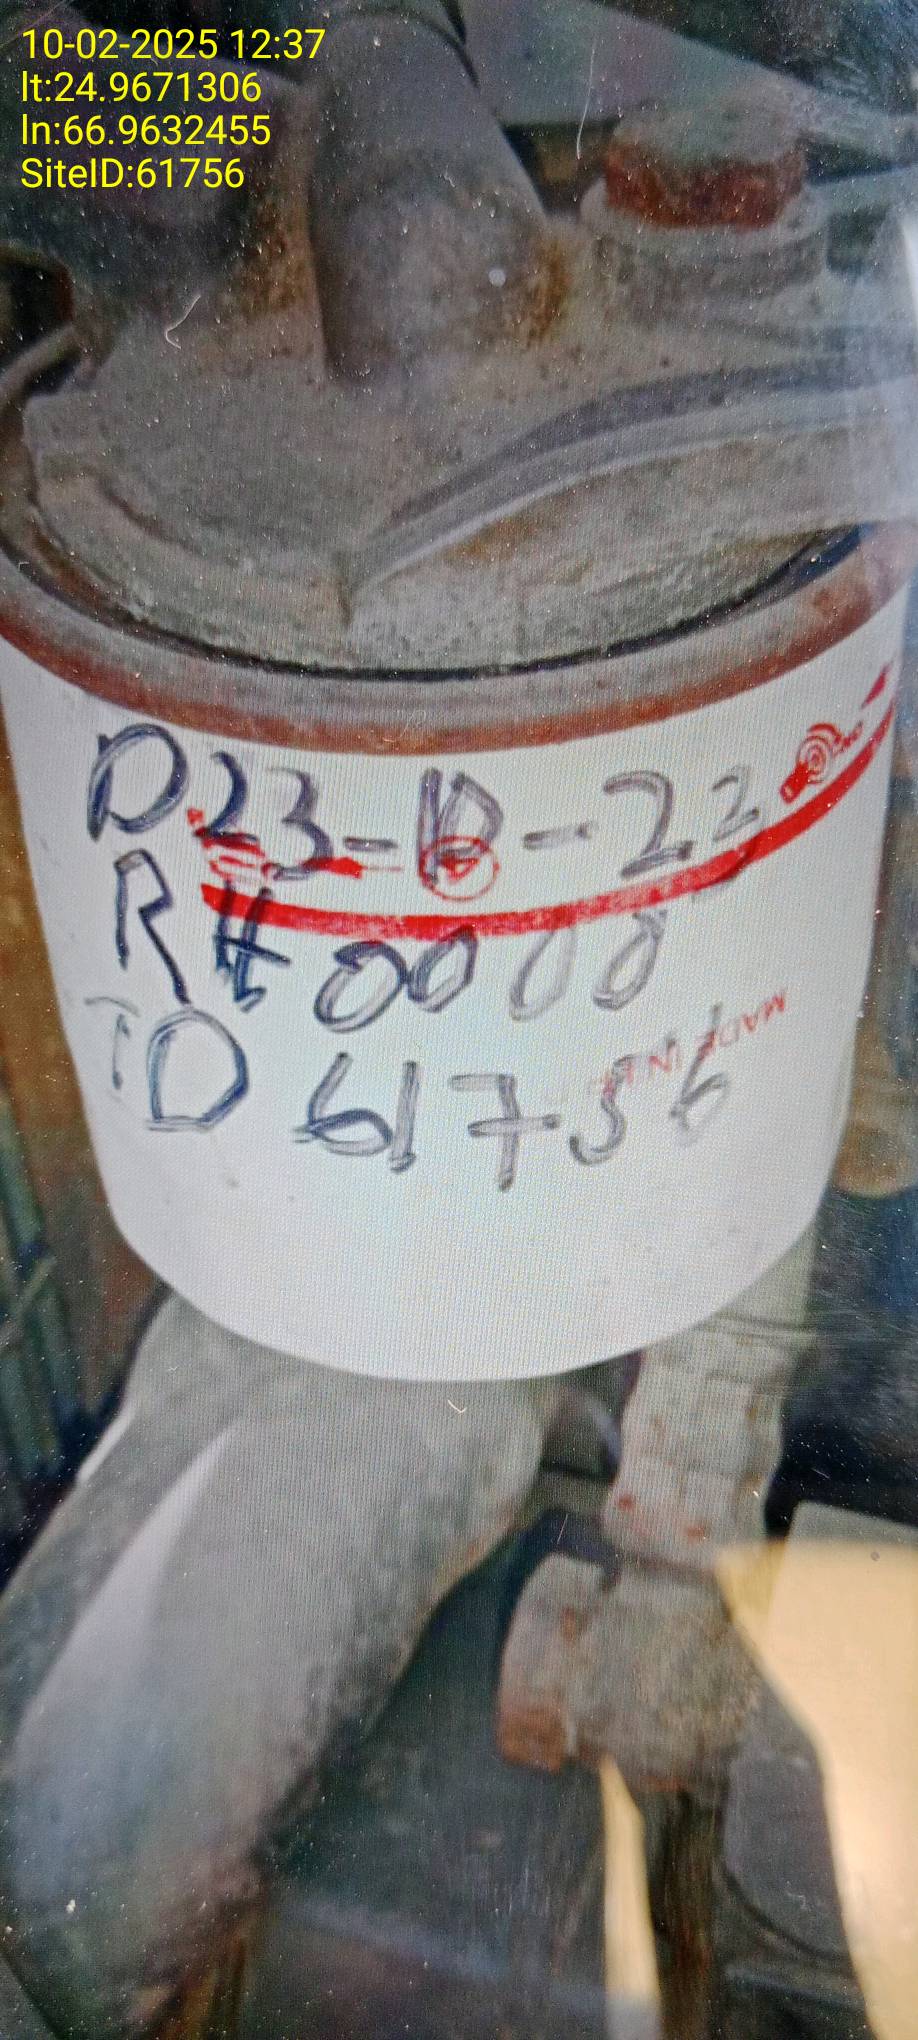 10-02-2025 12:37
lt:24.9671306
ln:66.9632455
SiteID:61756
D.23-12-22
RH 0000
ID 61756
MADE IN